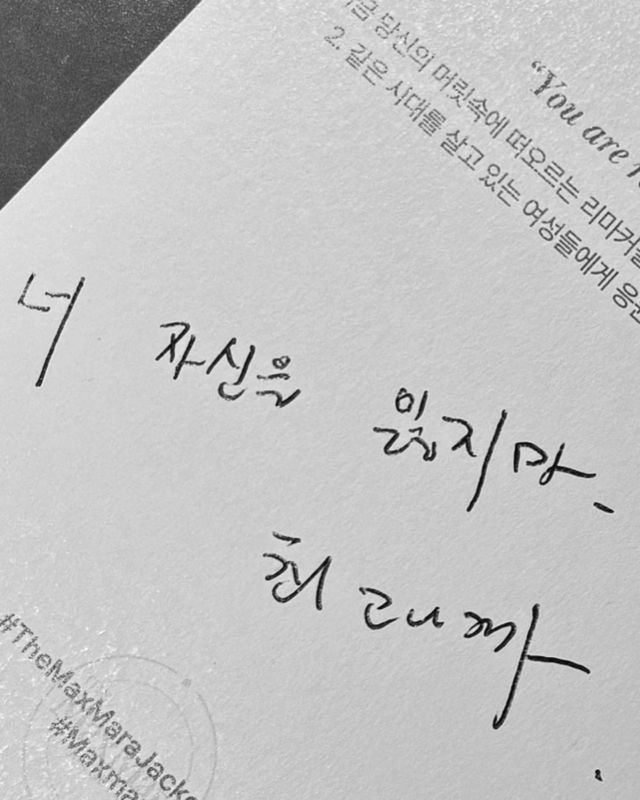 “You are
금 당신의 머릿속에 떠오르는 리마커
2. 같은 시대를 살고 있는 여성들에게
너 자신을 잃지마.
최고니까.
#TheMaxMaraJacke
#Maxma